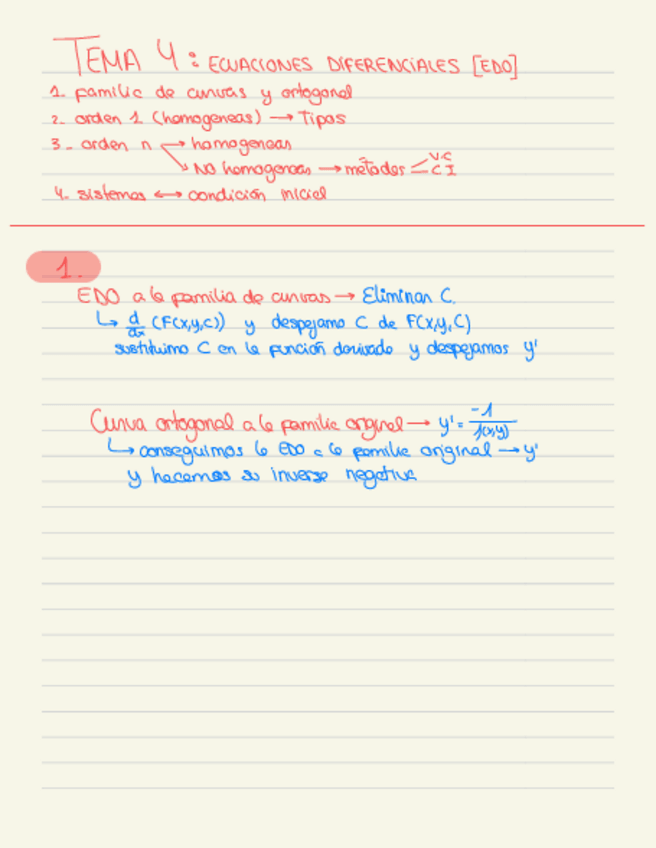 TEMA 4: ECUACIONES DIFERENCIALES [EDO]
1. familia de curvas y ortogonal
2. orden 1 (homogeneas) → Tipos
3 - orden n → homogeneas
↘ NO homogeneas → métodos < V.C
C I
4. sistemas ↔ condición inicial
1.
EDO a la familia de curvas → Eliminar C.
↳ d/dx (F(x,y,c)) y despejamo C de F(x,y,C)
sustituimo C en la función derivada y despejamos y'
Curva ortogonal a la familia original → y' = -1/f(x,y)
↳ conseguimos la EDO a la familia original → y'
y hacemos su inversa negativa